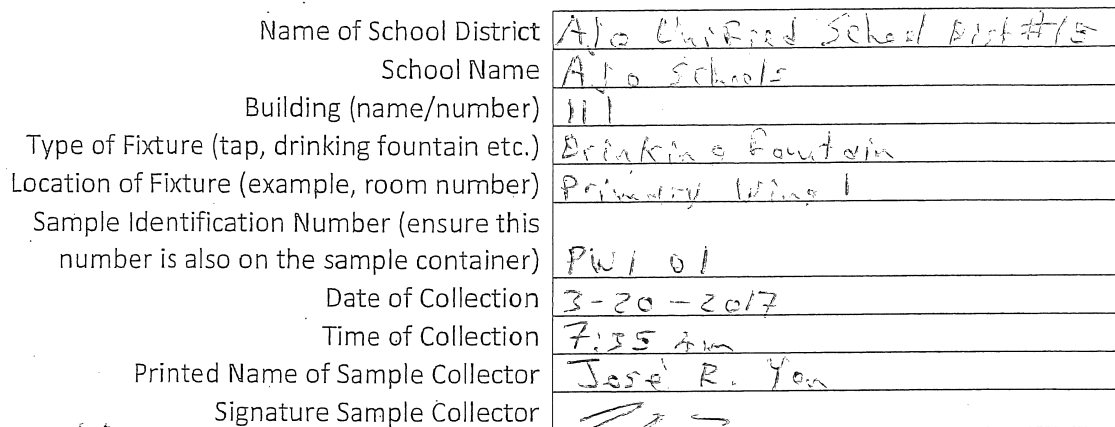 Name of School District Ajo Unified School Dist #15
School Name Ajo Schools
Building (name/number) 111
Type of Fixture (tap, drinking fountain etc.) Drinking Fountain
Location of Fixture (example, room number) Primary Wing 1
Sample Identification Number (ensure this
number is also on the sample container) PW1 01
Date of Collection 3-20-2017
Time of Collection 7:35 am
Printed Name of Sample Collector José R. Yon
Signature Sample Collector